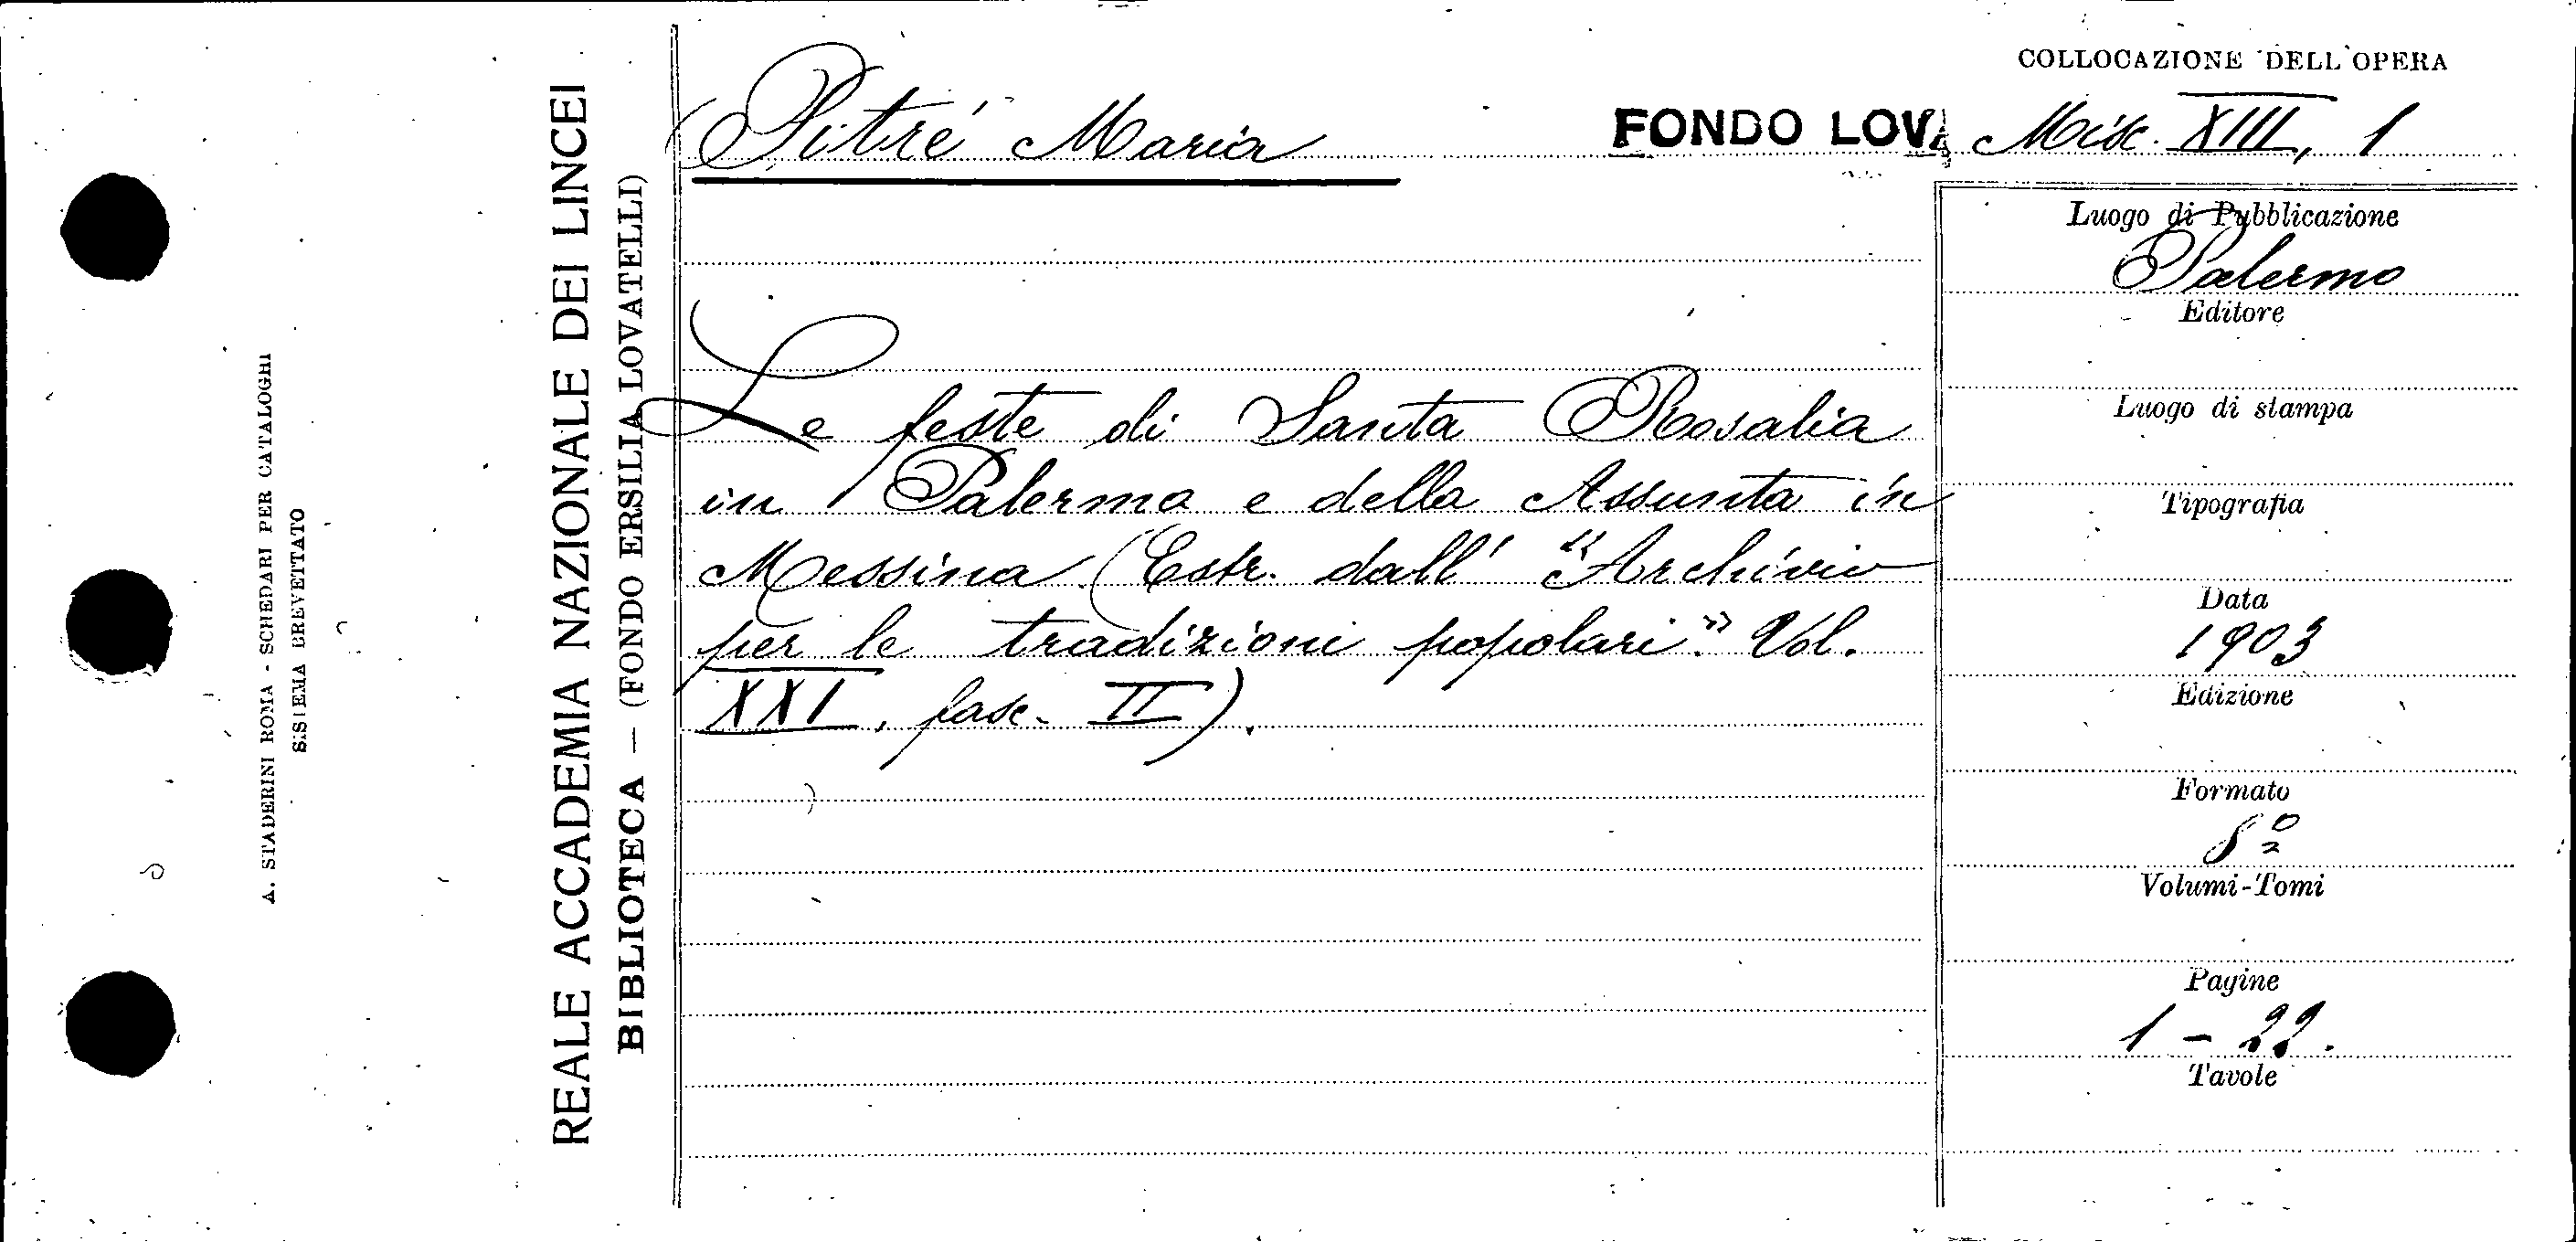 A. STADERINI ROMA - SCHEDARI PER CATALOGHI
SISTEMA BREVETTATO
REALE ACCADEMIA NAZIONALE DEI LINCEI
BIBLIOTECA — (FONDO ERSILIA LOVATELLI)
Pitré Maria
Le feste di Santa Rosalia
in Palermo e della Assunta in
Messina (Estr. dall' "Archivio
per le tradizioni popolari". Vol.
XXI, fasc. II).
COLLOCAZIONE DELL'OPERA
FONDO LOVA Misc. XIII, 1
Luogo di Pubblicazione
Palermo
Editore
Luogo di stampa
Tipografia
Data
1903
Edizione
Formato
8º
Volumi-Tomi
Pagine
1 - 22.
Tavole